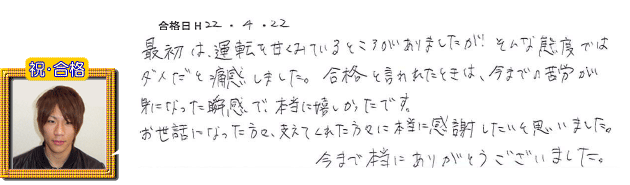 合格日 H22・4・22
最初は、運転を甘くみているところがありましたが、そんな態度では
ダメだと痛感しました。合格と言われたときは、今までの苦労が
実になった瞬感で本当に嬉しかったです。
お世話になった方々、支えてくれた方々に本当に感謝したいと思いました。
今まで本当にありがとうございました。
祝・合格